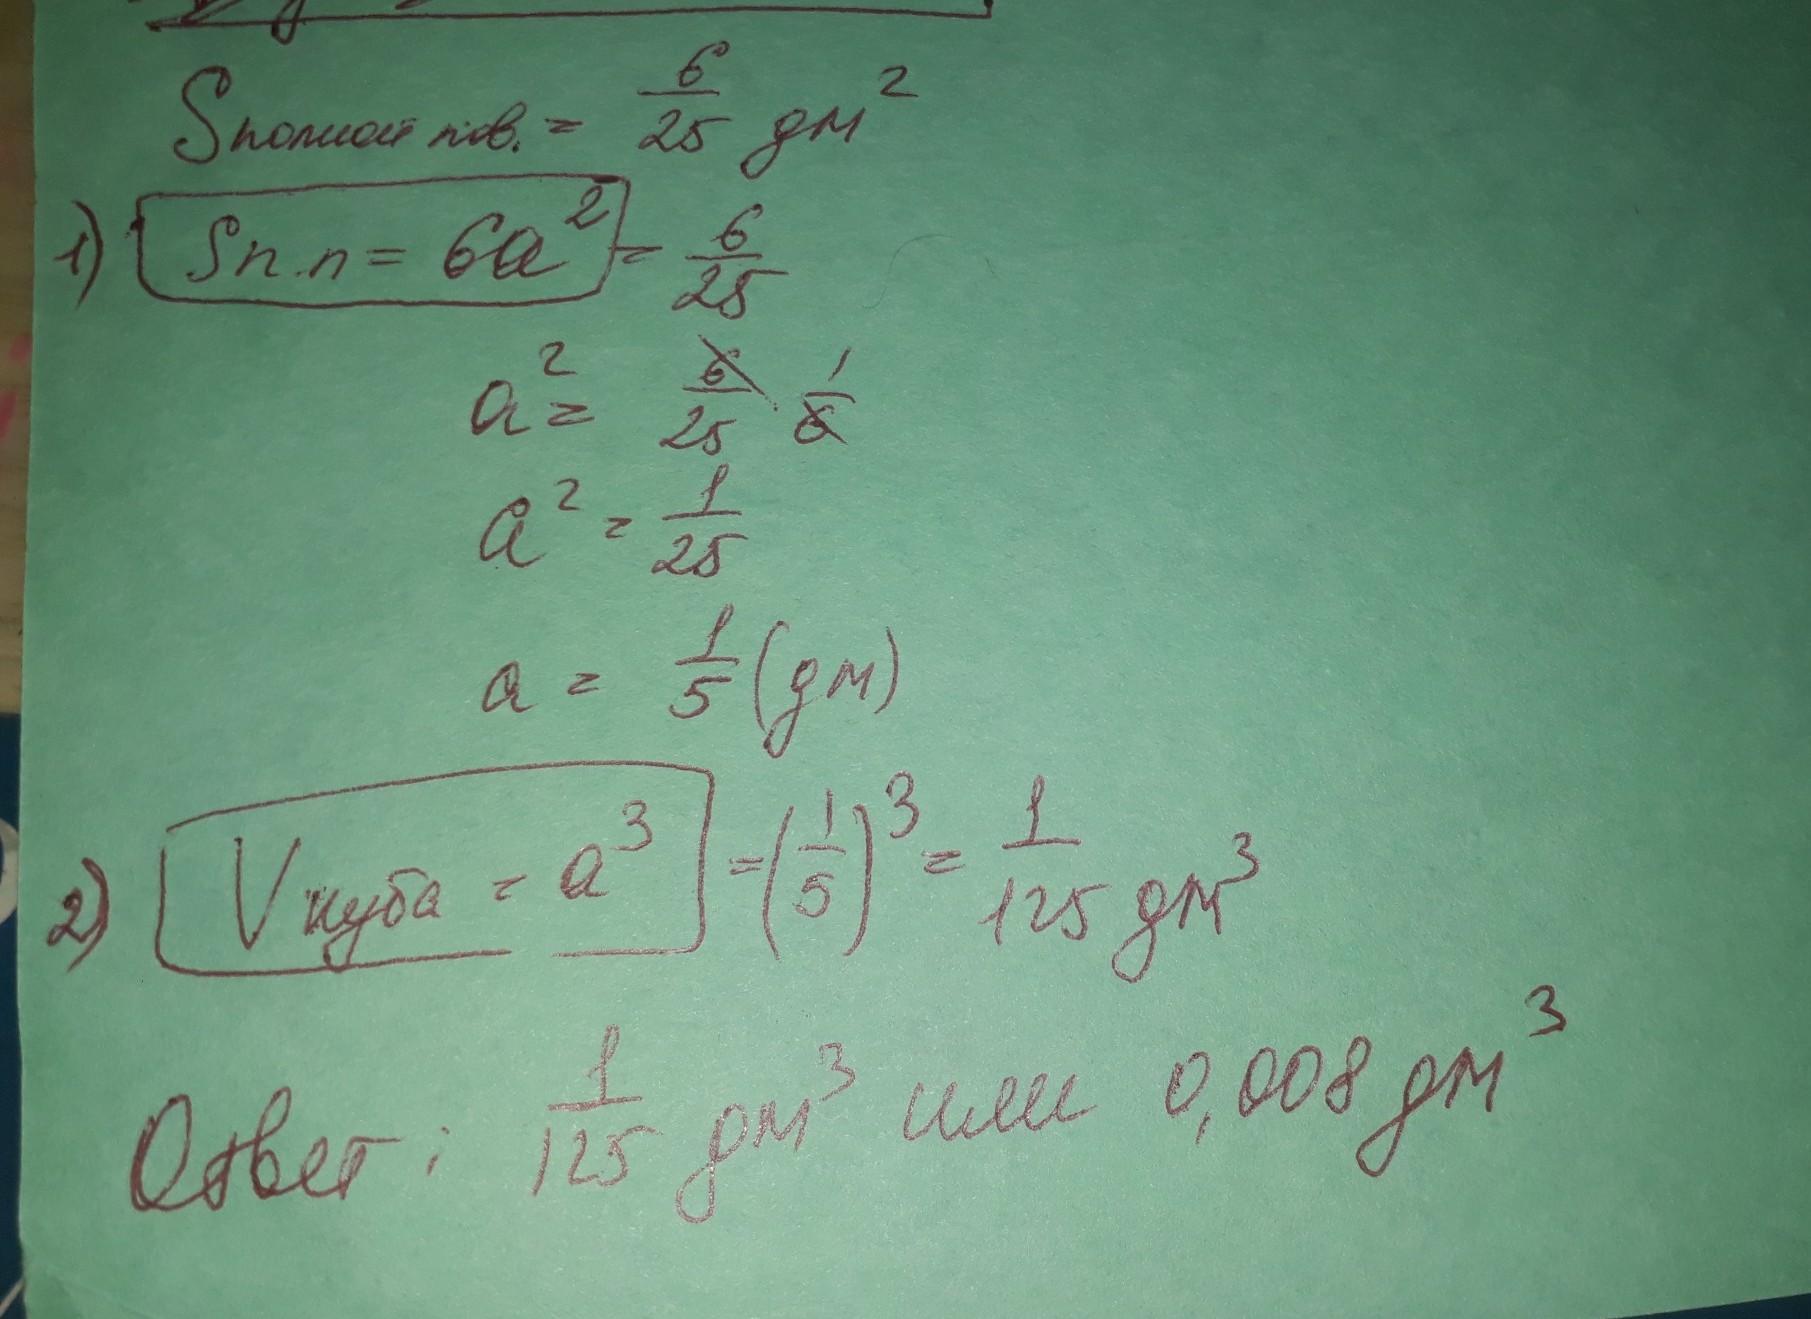 Sполной пов. = 6/25 дм²
1) Sп.п = 6a² = 6/25
a² = 6/25 · 1/6
a² = 1/25
a = 1/5 (дм)
2) Vкуба = a³ = (1/5)³ = 1/125 дм³
Ответ: 1/125 дм³ или 0,008 дм³